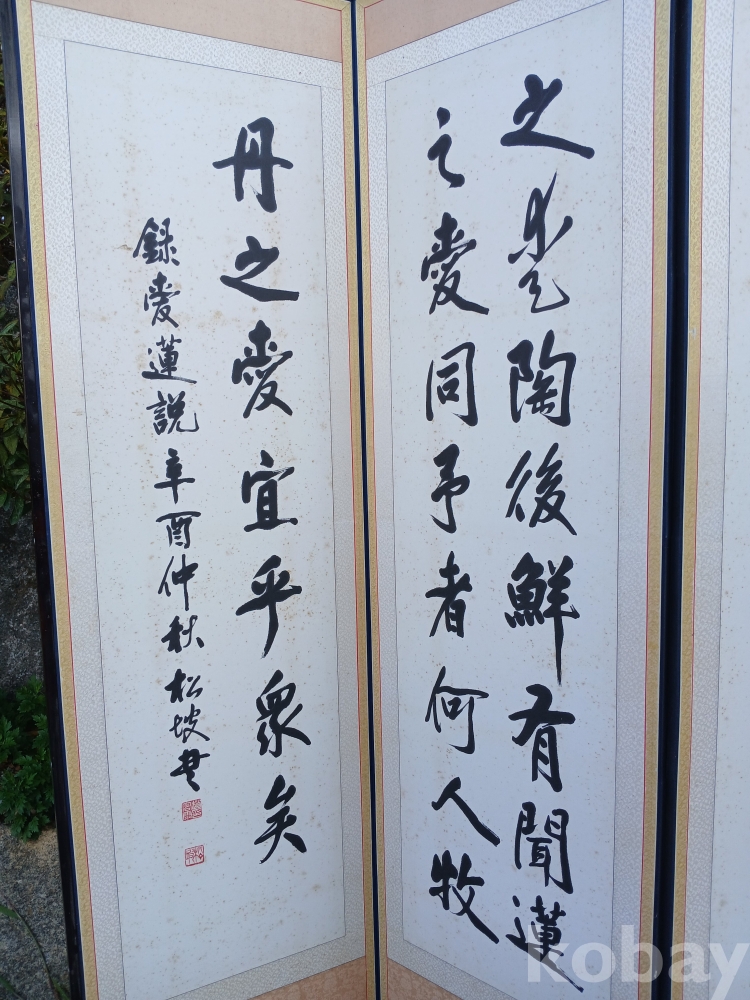 之愛陶後鮮有聞蓮
之愛同予者何人牧
丹之愛宜乎衆矣
録愛蓮説辛酉仲秋松坡書
kobay